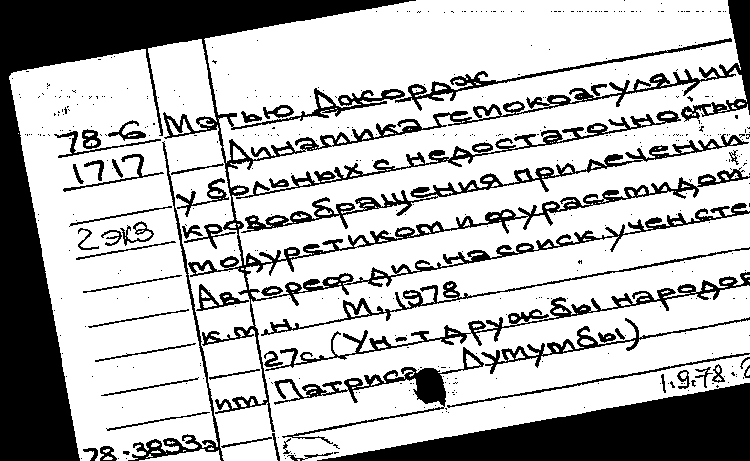 78-6 Мотью, Джордж
1717 Динамика гемокоагуляции
у больных с недостаточностью
2 экз кровообращения при лечении
модуретиком и фурасемидом
Автореф. дис. на соиск. учен. сте
к.м.н. М., 1978.
27с. (Ун-т дружбы народов
им. Патриса Лумумбы)
1.9.78.
78-3893а